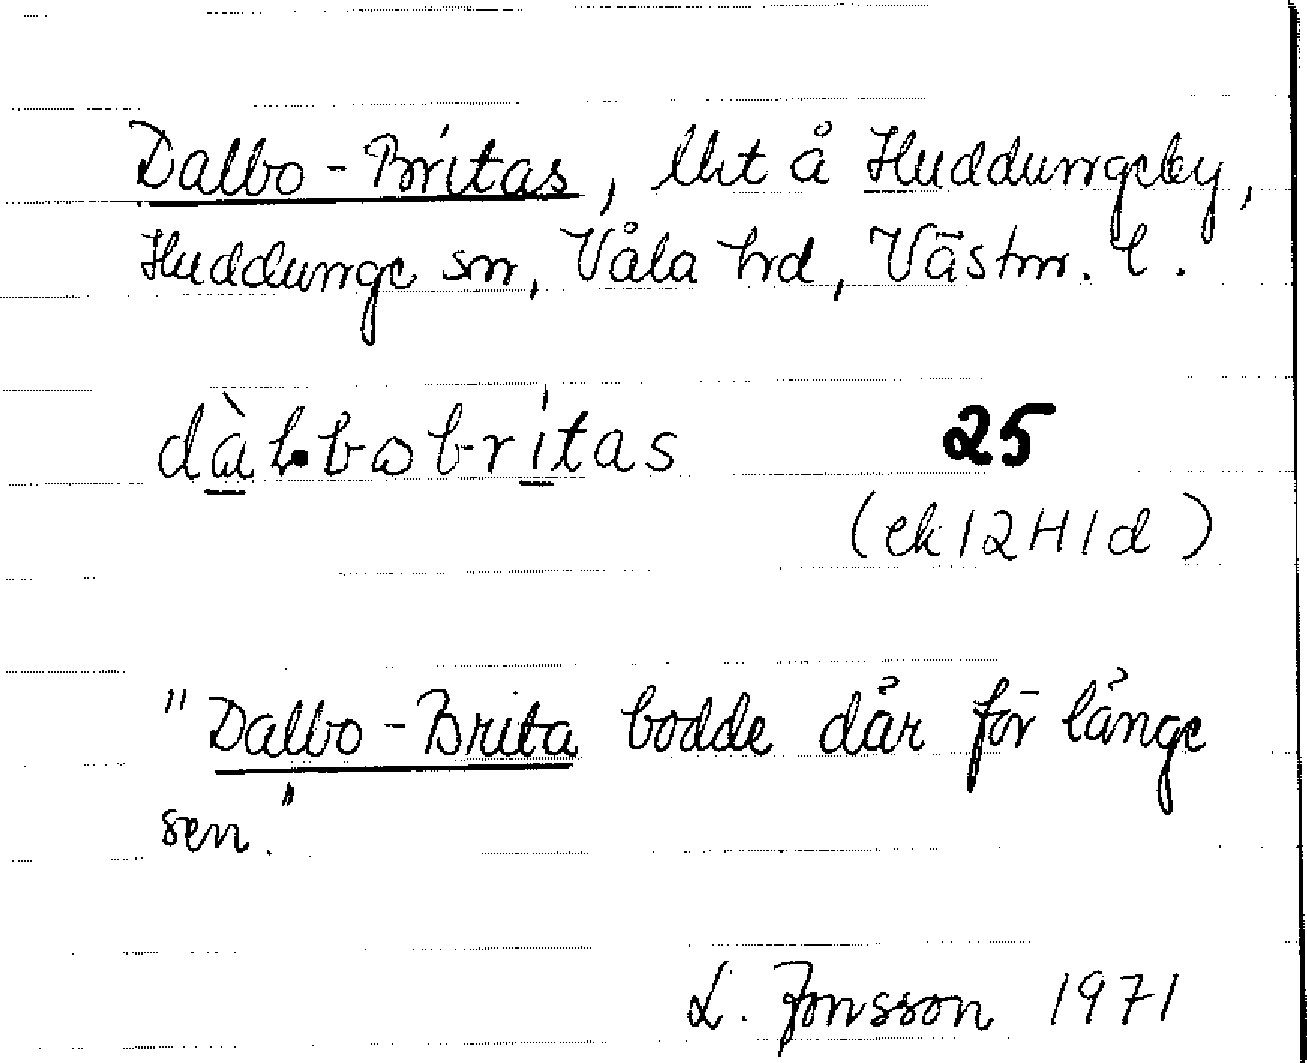 Dalbo-Britas, lht å Huddungeby,
Huddunge sn, Våla hd, Västm. l.
dàlbobrítas 25
(ek 12H1d)
"Dalbo-Brita bodde där för länge
sen."
L. Jonsson 1971